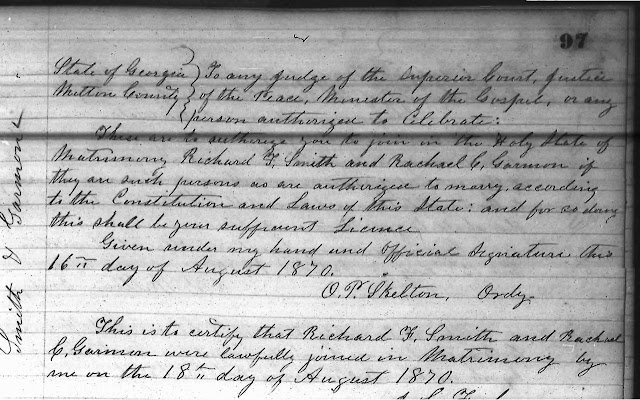 97
State of Georgia } To any judge of the Superior Court, Justice
Milton County } of the Peace, Minister of the Gospel, or any
person authorized to Celebrate:
These are to authorize you to join in the Holy State of
Matrimony Richard F. Smith and Rachael C. Garmon if
they are such persons as are authorized to marry, according
to the Constitution and Laws of this State: and for so doing
this shall be your sufficient Licence
Given under my hand and Official Signature this
16th day of August 1870.
O.P. Skelton, Ordy.
Smith & Garmon
This is to certify that Richard F. Smith and Rachael
C. Garmon were lawfully joined in Matrimony by
me on the 18th day of August 1870.